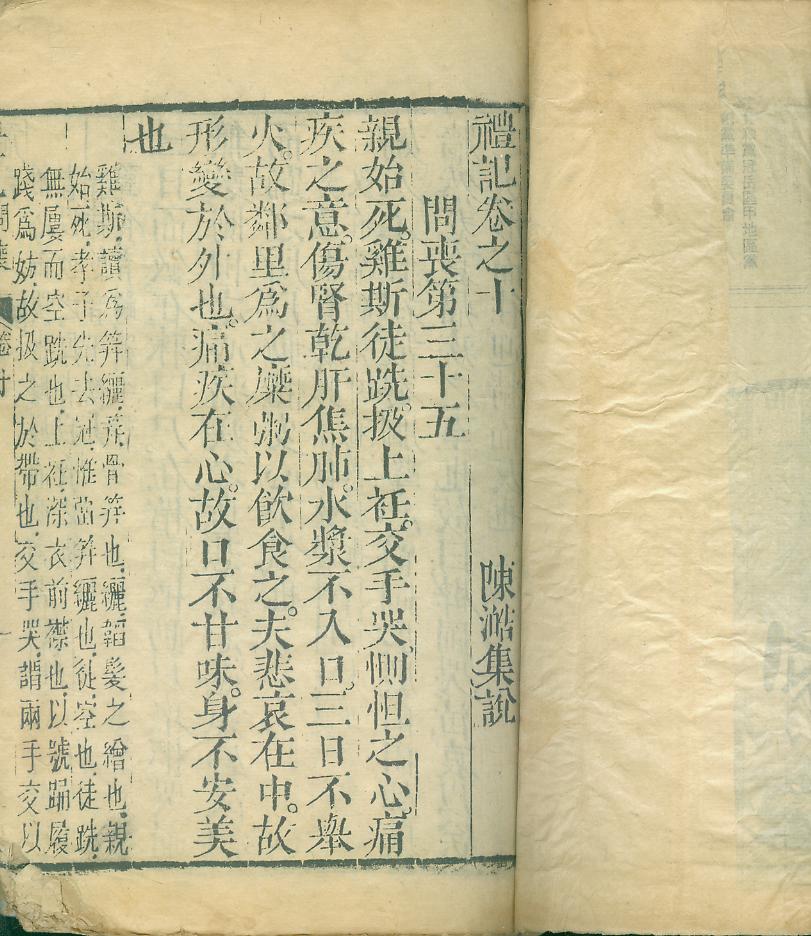 禮記卷之十 陳澔集說
問喪第三十五
親始死。雞斯徒跣。扱上衽。交手哭。惻怛之心。痛
疾之意。傷腎乾肝焦肺。水漿不入口。三日不舉
火。故鄰里爲之糜粥以飲食之。夫悲哀在中。故
形變於外也。痛疾在心。故口不甘味。身不安美
也
雞斯,讀爲筓纚,筓,骨筓也,纚,韜髮之繒也,親
始死,孝子先去冠,惟留筓纚也,徒,空也,徒跣,
無屨而空跣也,上衽,深衣前襟也,以號踊履
踐爲妨,故扱之於帶也,交手哭,謂兩手交以